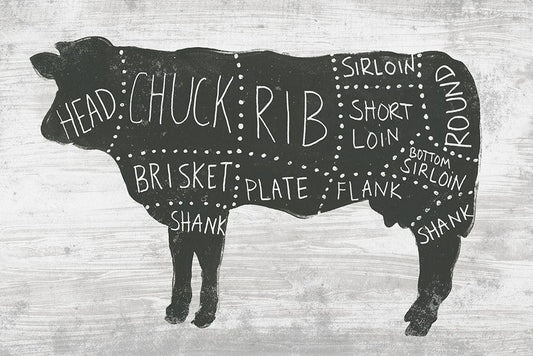 HEAD
CHUCK
RIB
SIRLOIN
SHORT
LOIN
ROUND
BOTTOM
SIRLOIN
BRISKET
PLATE
FLANK
SHANK
SHANK